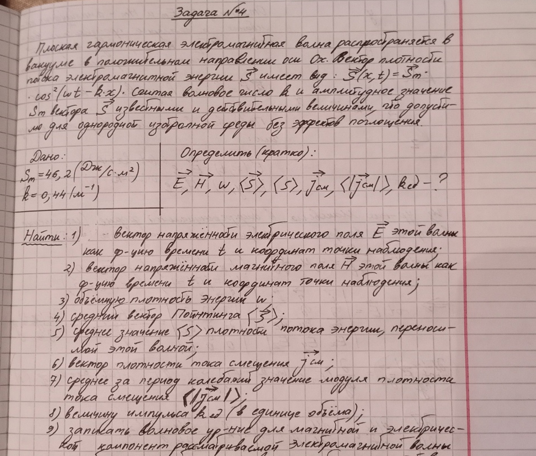 Задача №4
Плоская гармоническая электромагнитная волна распространяется в
вакууме в положительном направлении оси Ox. Вектор плотности
потока электромагнитной энергии S⃗ имеет вид: S⃗(x,t) = S⃗m·
·cos²(ωt - kx). Считая волновое число k и амплитудное значение
Sm вектора S⃗ известными и действительными величинами, что допусти-
мо для однородной изотропной среды без эффектов поглощения.
Дано:
Sm = 46,2 (Дж/с·м²)
k = 0,44 (м⁻¹)
Определить (кратко):
E⃗, H⃗, w, <S⃗>, <S>, j⃗см, <|j⃗см|>, kед - ?
Найти: 1) вектор напряжённости электрического поля E⃗ этой волны
как ф-цию времени t и координат точки наблюдения;
2) вектор напряжённости магнитного поля H⃗ этой волны как
ф-цию времени t и координат точки наблюдения;
3) объёмную плотность энергии w;
4) средний вектор Пойнтинга <S⃗>;
5) среднее значение <S> плотности потока энергии, переноси-
мой этой волной;
6) вектор плотности тока смещения j⃗см;
7) среднее за период колебаний значение модуля плотности
тока смещения <|j⃗см|>;
8) величину импульса kед (в единице объёма);
9) записать волновое ур-ние для магнитной и электричес-
кой компонент рассматриваемой электромагнитной волны